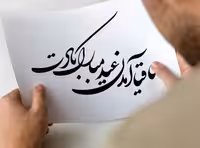 تا قیامت آمدن عید مبارک بادت